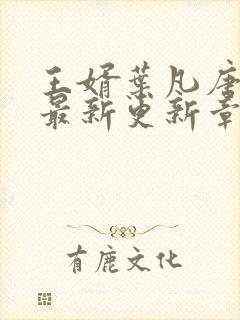 王婿叶凡唐
最新更新章
有鹿文化